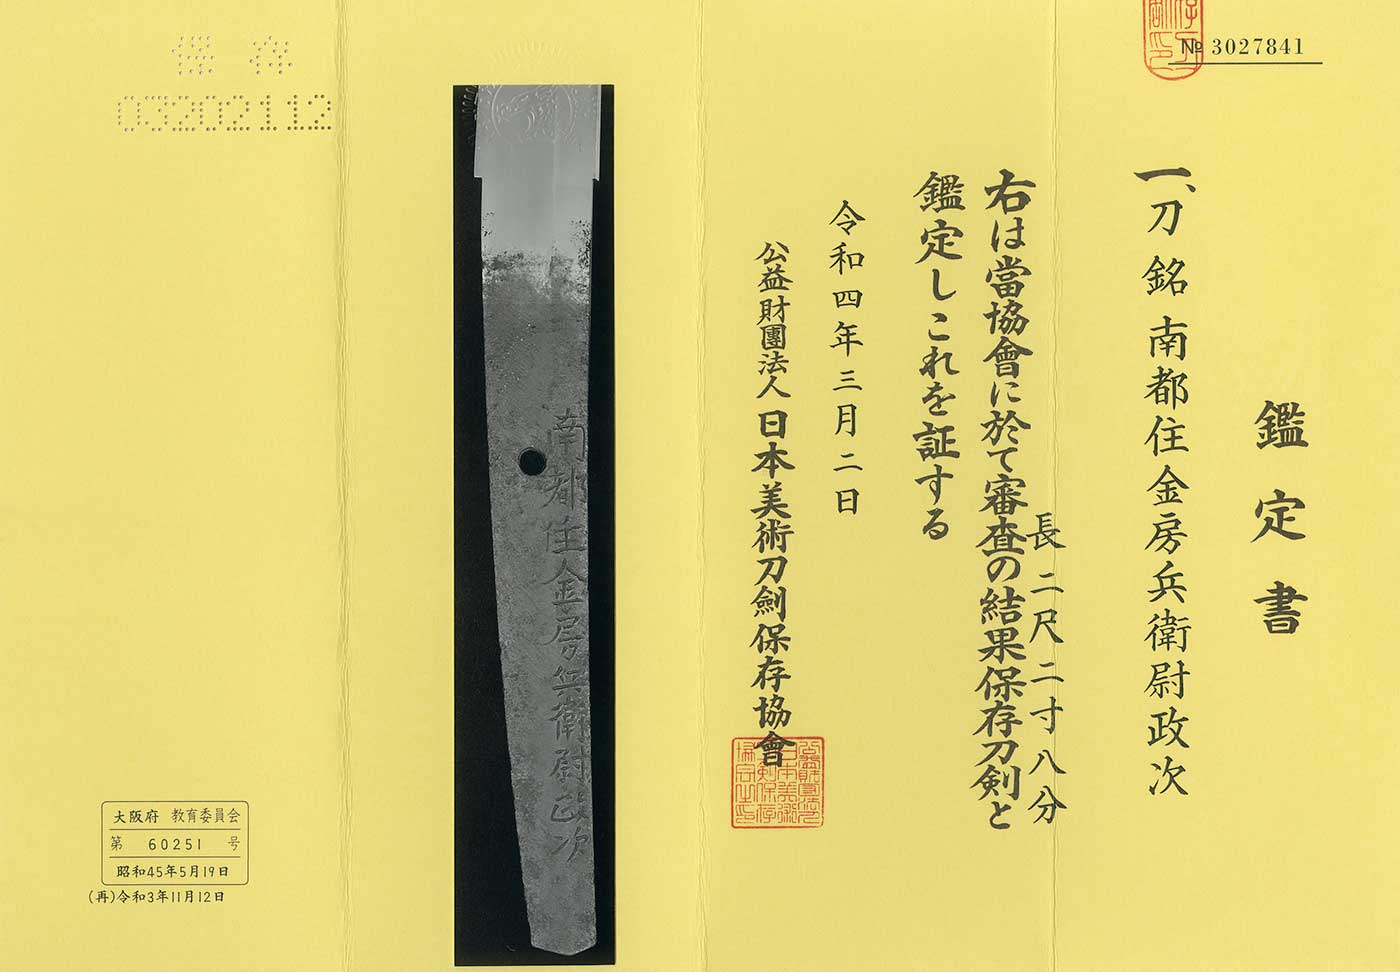 № 3027841
鑑定書
一、刀 銘 南都住金房兵衛尉政次
長 二尺二寸八分
右は當協會に於て審査の結果保存刀剣と
鑑定しこれを証する
令和四年三月二日
公益財團法人 日本美術刀劍保存協會
南都住金房兵衛尉政次
保存
03202112
大阪府 教育委員会
第 60251 号
昭和45年5月19日
(再)令和3年11月12日